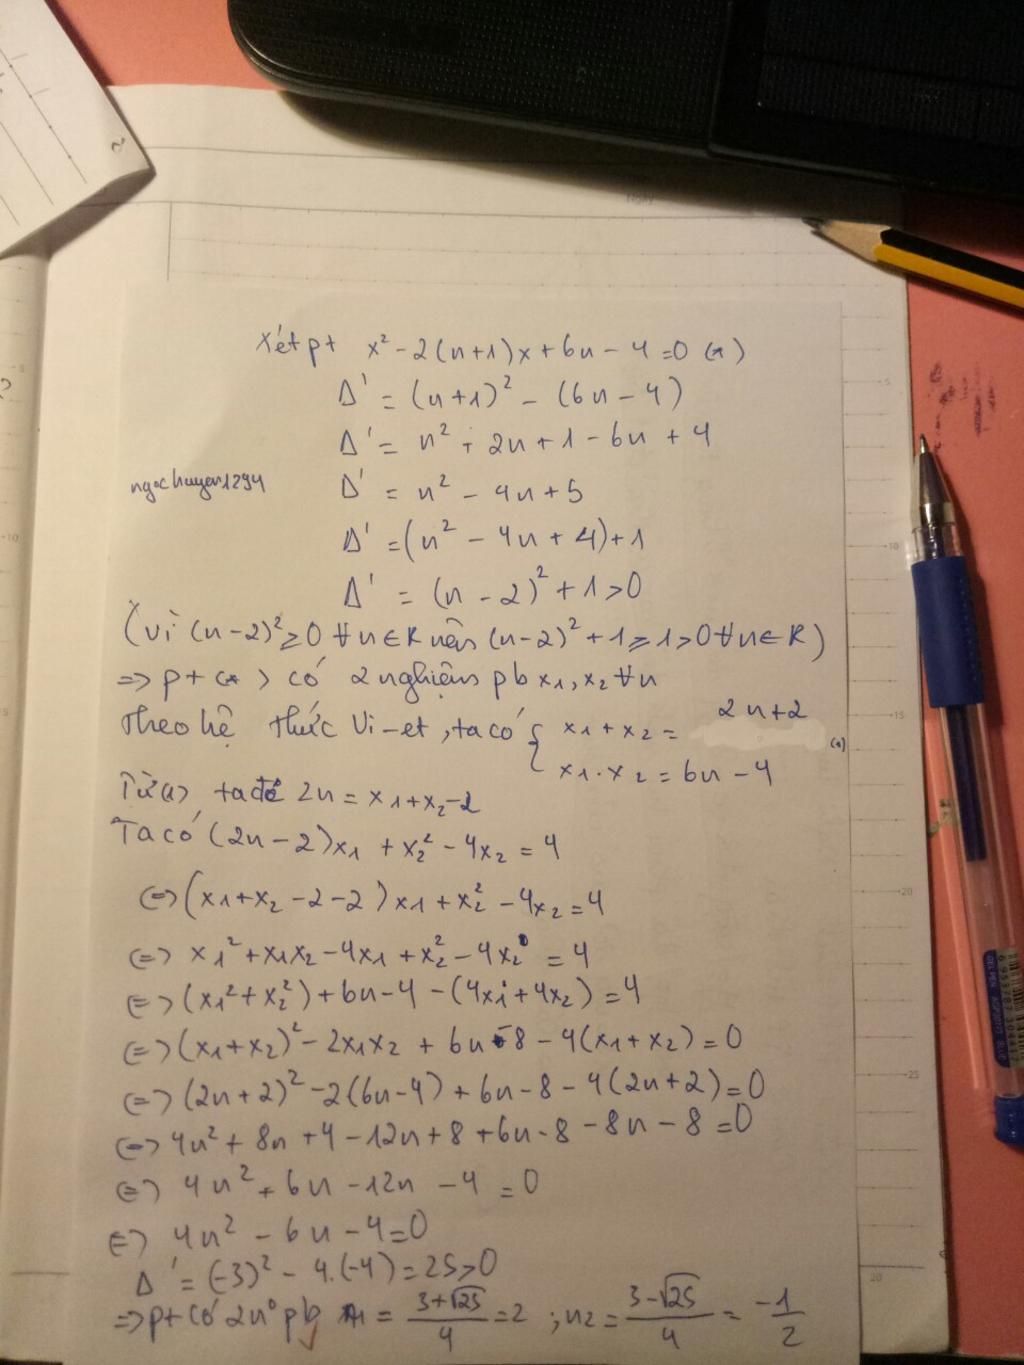 Xét pt x² - 2(n+1)x + 6n - 4 = 0 (*)
Δ' = (n+1)² - (6n - 4)
Δ' = n² + 2n + 1 - 6n + 4
ngochuyen1294
Δ' = n² - 4n + 5
Δ' = (n² - 4n + 4) + 1
Δ' = (n - 2)² + 1 > 0
(Vì (n-2)² ≥ 0 ∀n∈R nên (n-2)² + 1 ≥ 1 > 0 ∀n∈R)
=> pt (*) có 2 nghiệm pb x₁, x₂ ∀n
Theo hệ thức Vi-et, ta có { x₁ + x₂ = 2n+2
x₁.x₂ = 6n - 4 (1)
Từ (1) ta có 2n = x₁+x₂-2
Ta có (2n-2)x₁ + x₂² - 4x₂ = 4
<=> (x₁+x₂ -2-2)x₁ + x₂² - 4x₂ = 4
<=> x₁² + x₁x₂ - 4x₁ + x₂² - 4x₂ = 4
<=> (x₁² + x₂²) + 6n - 4 - (4x₁ + 4x₂) = 4
<=> (x₁+x₂)² - 2x₁x₂ + 6n - 8 - 4(x₁+x₂) = 0
<=> (2n+2)² - 2(6n-4) + 6n - 8 - 4(2n+2) = 0
<=> 4n² + 8n + 4 - 12n + 8 + 6n - 8 - 8n - 8 = 0
<=> 4n² + 6n - 12n - 4 = 0
<=> 4n² - 6n - 4 = 0
Δ' = (-3)² - 4.(-4) = 25 > 0
=> pt có 2n⁰ pb n₁ = (3+√25)/4 = 2 ; n₂ = (3-√25)/4 = -1/2